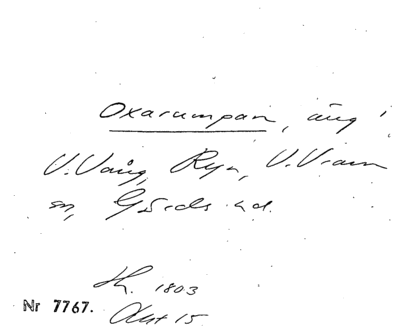 Oxarumpan, äng
V. Vång, Ryn, V. Vram
sn, Gärds hd.
Sk. 1803
Akt 15
Nr 7767.